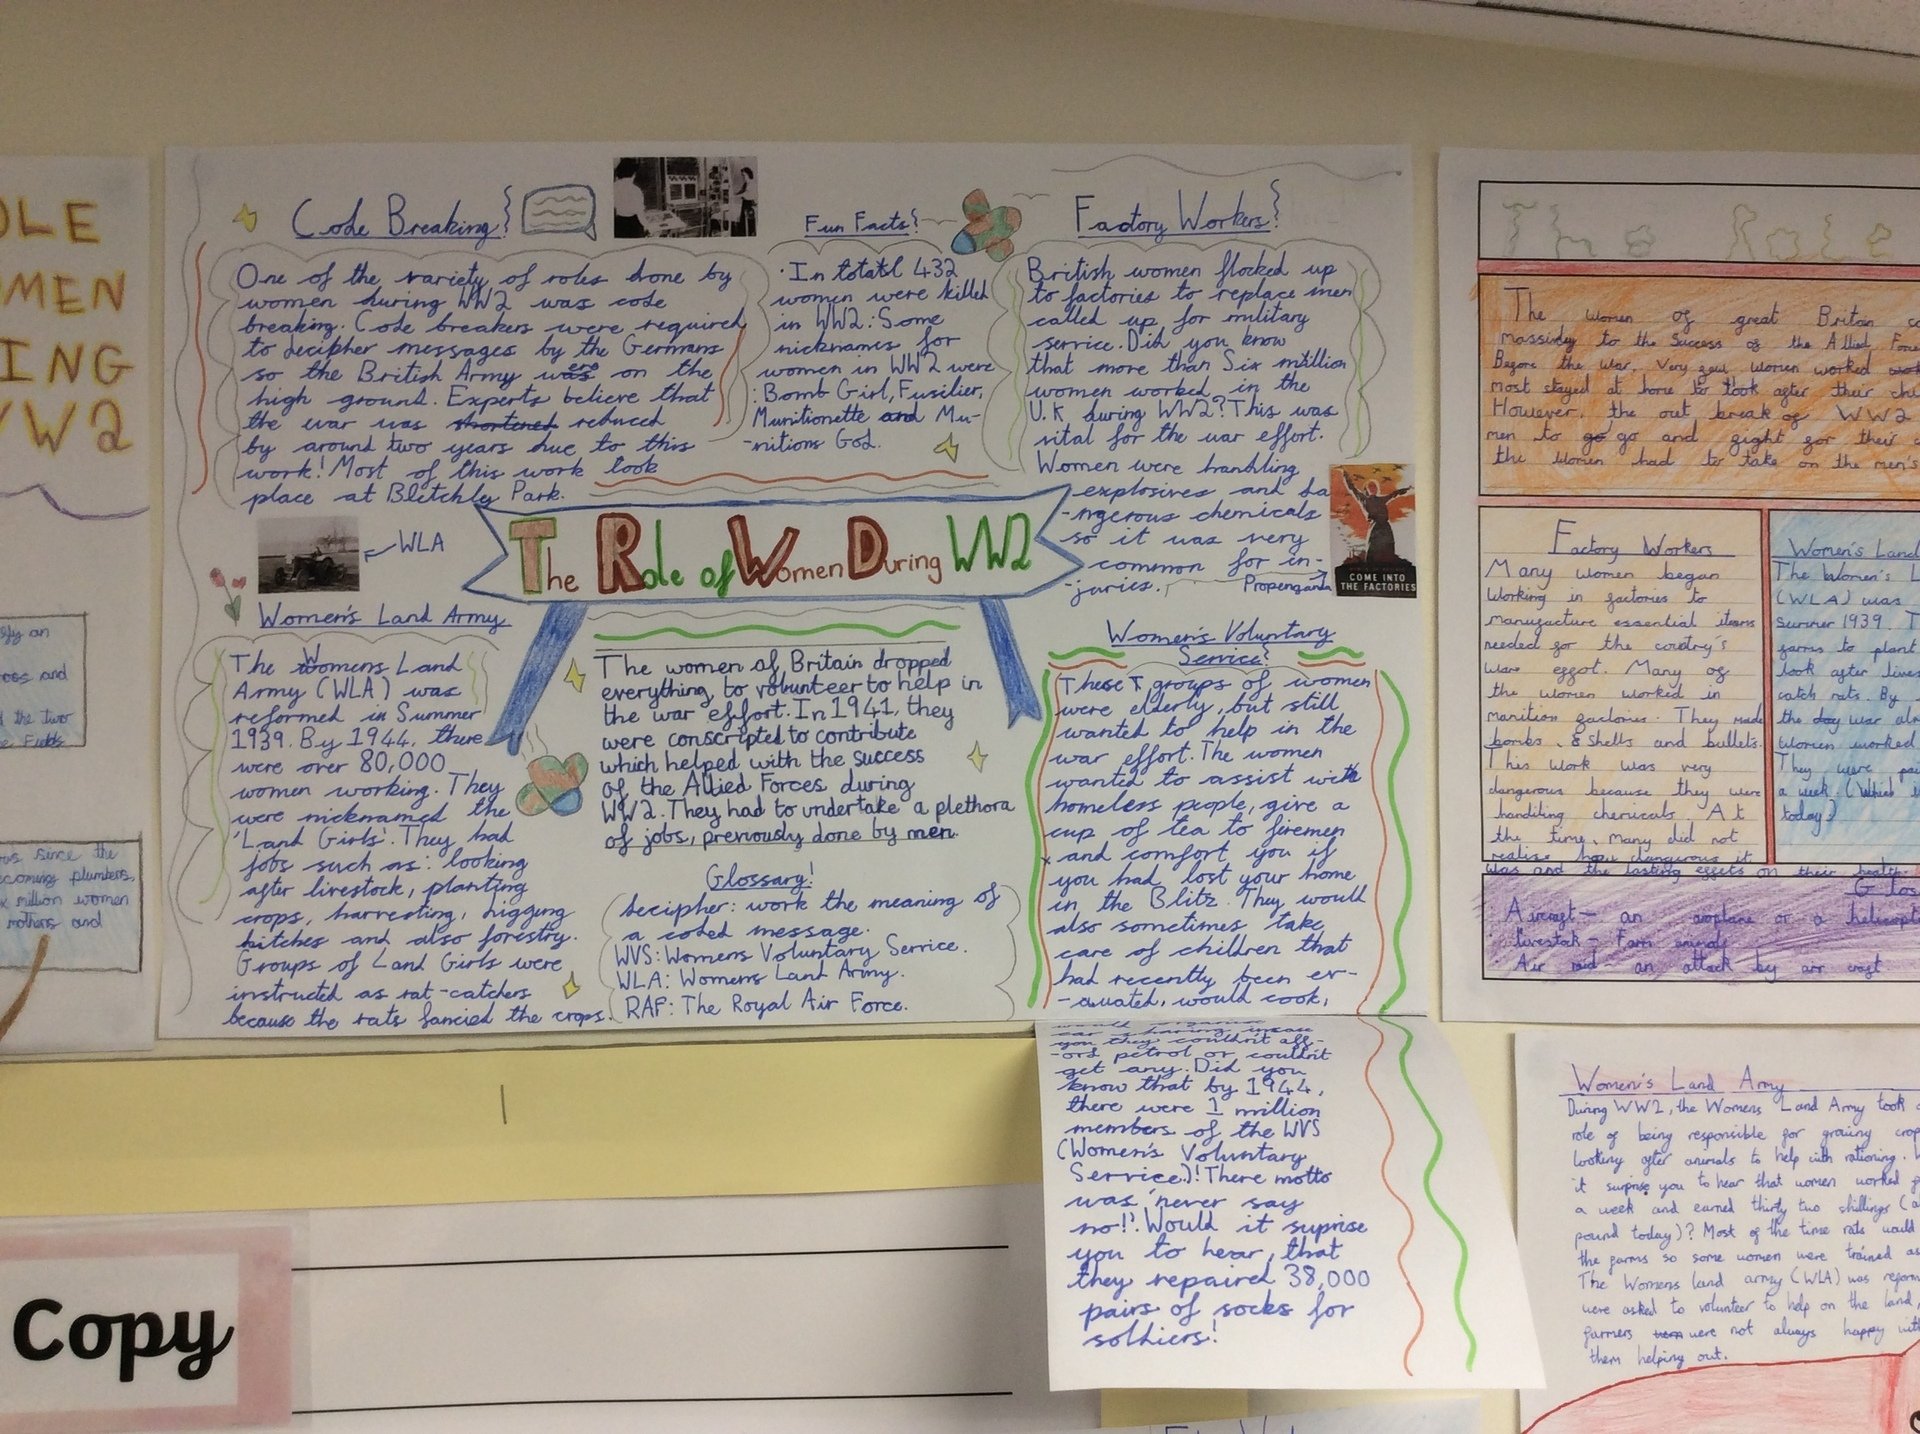 OLE
OMEN
ING
WW2
Code Breaking!
One of the variety of roles done by
women during WW2 was code
breaking. Code breakers were required
to decipher messages by the Germans
so the British Army were on the
high ground. Experts believe that
the war was shortened reduced
by around two years due to this
work! Most of this work took
place at Bletchley Park.
Fun Facts!
· In totatl 432
women were killed
in WW2: Some
nicknames for
women in WW2 were
: Bomb Girl, Fusilier,
Munitionette and Mu-
-nitions God.
Factory Workers!
British women flocked up
to factories to replace men
called up for military
service. Did you know
that more than Six million
women worked in the
U.K during WW2? This was
vital for the war effort.
Women were handling
explosives and da
-ngerous chemicals
so it was very
common for in-
-juries.
Propenganda
COME INTO
THE FACTORIES
WLA
The Role of Women During WW2
Women's Land Army
The Womens Land
Army (WLA) was
reformed in Summer
1939. By 1944, there
were over 80,000
women working. They
were nicknamed the
'Land Girls'. They had
jobs such as: looking
after livestock, planting
crops, harvesting, digging
ditches and also forestry.
Groups of Land Girls were
instructed as rat-catchers
because the rats fancied the crops.
The women of Britain dropped
everything to volunteer to help in
the war effort. In 1941, they
were conscripted to contribute
which helped with the success
of the Allied Forces during
WW2. They had to undertake a plethora
of jobs, previously done by men.
Glossary!
decipher: work the meaning of
a coded message.
WVS: Womens Voluntary Service.
WLA: Womens Land Army.
RAF: The Royal Air Force.
Women's Voluntary
Service!
These groups of women
were elderly, but still
wanted to help in the
war effort. The women
wanted to assist with
homeless people, give a
cup of tea to firemen
and comfort you if
you had lost your home
in the Blitz. They would
also sometimes take
care of children that
had recently been ev-
-acuated, would cook,
would organise
car sharing incase
you they couldn't aff-
-ord petrol or couldn't
get any. Did you
know that by 1944,
there were 1 million
members of the WVS
(Women's Voluntary
Service)! There motto
was 'never say
no!'. Would it suprise
you to hear, that
they repaired 38,000
pairs of socks for
soldiers!
The Role
The women of great Britain
massivley to the success of the Allied
Before the war, very few women worked
most stayed at home to look after their
However, the out break of WW2
men to go go and fight for their
the women had to take on the men's
Factory Workers
Many women began
working in factories to
manufacture essential items
needed for the country's
ware effort. Many of
the women worked in
munition factories. They made
bombs, shells and bullets.
This work was very
dangerous because they were
handiling chemicals. At
the time, many did not
realise how dangerous it
was and the lasting effets on their health.
Women's Land
The Women's L
(WLA) was
summer 1939. T
farms to plant
look after lives
catch rats. By
the day war
women worked
They were
a week. (Which
today)
Glos
Aircraft - an airplane or a helicopt
livestock - Farm animals
Air raid - an attack by air craft
Women's Land Army
During WW2, the Womens Land Army took
role of being responsible for growing
looking after animals to help with rationing.
it surprise you to hear that women worked
a week and earned thirty two shillings
pound today)? Most of the time rats would
the farms so some women were trained as
The Womens land army (WLA) was
were asked to volunteer to help on the land
farmers were not always happy
them helping out.
Copy